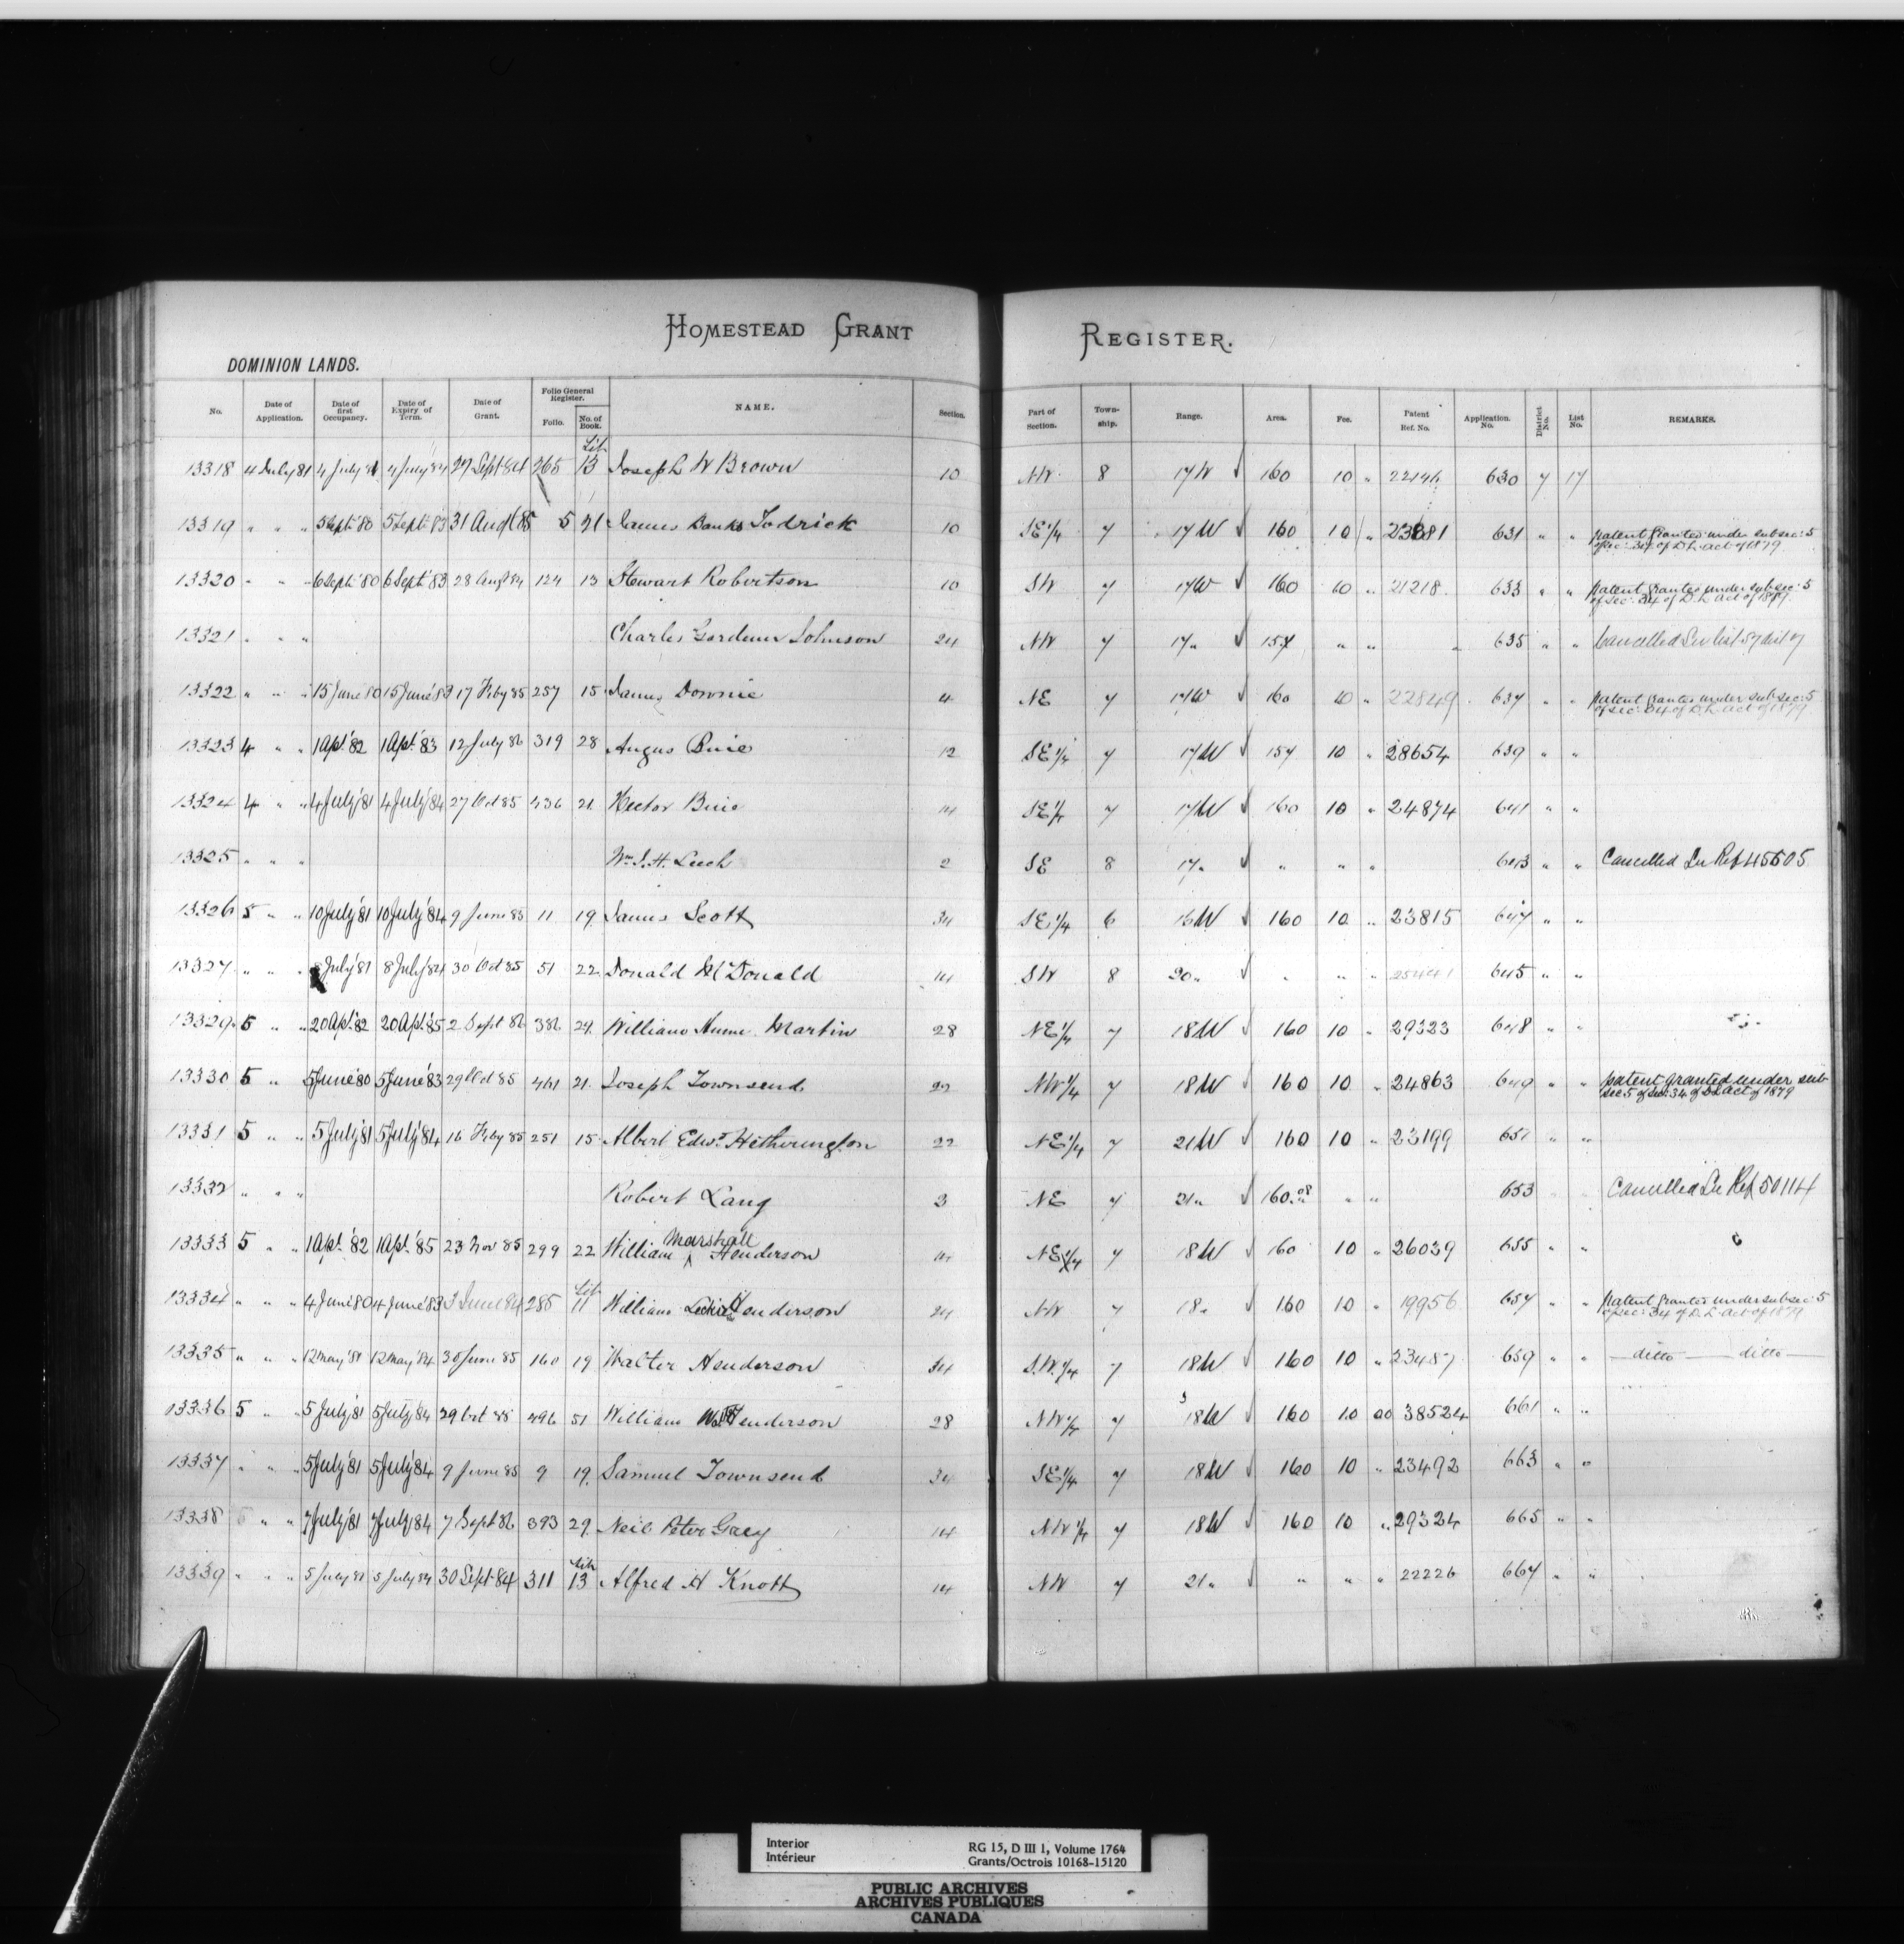 HOMESTEAD GRANT REGISTER.
DOMINION LANDS.
No. Date of Application. Date of first Occupancy. Date of Expiry of Term. Date of Grant. Folio General Register. Folio. No. of Book. NAME. Section. Part of Section. Town-ship. Range. Area. Fee. Patent Ref. No. Application No. District No. List No. REMARKS.
13318 4 July 81 4 July 81 4 July 84 27 Sept 84 265 Lib 13 Joseph W Brown 10 NW 8 17W 160 10 " 22146 630 7 17
13319 " " " 5 Sept '80 5 Sept '83 31 Augt 85 5 21 James Banks 10 SE 1/4 7 17W 160 10 " 631 " " patent granted under subsec: 5 of sec: 34 of D.L. act of 1879
13320 " " " 6 Sept '80 6 Sept '83 28 Augt 84 124 13 Stewart Robertson 10 SW 7 17W 160 10 " 21218 633 " " patent granted under subsec: 5 of sec: 34 of D.L. act of
13321 " " " Charles Gardener Johnson 24 NW 7 17 " 157 " " 635 " " Cancelled See list 57 dist 7
13322 " " " 15 June 80 15 June '83 17 Feby 85 257 15 James Downie 4 NE 7 17W 160 10 " 22849 637 " " patent granted under subsec: 5 of sec: 34 of D.L. act of 1879
13323 4 " " 1 Apl. '82 1 Apl. '83 12 July 86 319 28 Angus Buie 12 SE 1/4 7 17W 157 10 " 28654 639 " "
13324 4 " " 4 July '81 4 July '84 27 Oct 85 436 21 Hector Buie 14 SE 1/4 7 17W 160 10 " 24874 641 " "
13325 " " " Wm. J. H. Leech 2 SE 8 17 " " " " 643 " " Cancelled See Ref 45505
13326 5 " " 10 July '81 10 July '84 9 June 85 11 19 James Scott 34 SE 1/4 6 16W 160 10 " 23815 647 " "
13327 " " " 8 July '81 8 July '84 30 Oct 85 51 22 Donald McDonald 14 SW 8 20 " " " " 645 " "
13329 5 " " 20 Apl. '82 20 Apl. '85 2 Sept 86 386 29 William Hume Martin 28 NE 1/4 7 18W 160 10 " 29323 648 " "
13330 5 " " 5 June '80 5 June '83 29 Oct 85 461 21 Joseph Townsend 22 NW 1/4 7 18W 160 10 " 24863 649 " " patent granted under sub sec 5 of sec. 34 of D L act of 1879
13331 5 " " 5 July '81 5 July '84 16 Feby 85 251 15 Albert Edwd Hetherington 22 NE 1/4 7 21W 160 10 " 23199 651 " "
13332 " " " Robert Lang 3 NE 7 21 " 160.28 " " 653 Cancelled See Ref 50114
13333 5 " " 1 Apl. '82 1 Apl. '85 23 Nov 85 299 22 William Marshall Henderson 14 NE 1/4 7 18W 160 10 " 26039 655 " "
13334 " " " 4 June '80 4 June '83 3 June 84 285 Lib 11 William Leckie Henderson 24 NW 7 18 " 160 10 " 19956 657 " " patent granted under subsec: 5 of sec: 34 of D.L. act of 1879
13335 " " " 12 May '81 12 May '84 30 June 85 160 19 Walter Henderson 34 S.W. 1/4 7 18W 160 10 " 23487 659 " " ditto ditto
13336 5 " " 5 July '81 5 July 84 29 Oct 88 496 51 William Henderson 28 NW 1/4 7 18W 160 10 00 38524 661 " "
13337 " " " 5 July '81 5 July '84 9 June 85 9 19 Samuel Townsend 34 SE 1/4 7 18W 160 10 " 23492 663 " "
13338 " " 7 July '81 7 July '84 7 Sept 86 393 29 Neil Peter Gray 14 NW 1/4 7 18W 160 10 " 29324 665 " "
13339 " " " 5 July 81 5 July 84 30 Sept 84 311 Lib 13 Alfred H Knott 14 NW 7 21 " " " " 22226 667 " "
Interior RG 15, D III 1, Volume 1764
Intérieur Grants/Octrois 10168-15120
PUBLIC ARCHIVES
ARCHIVES PUBLIQUES
CANADA